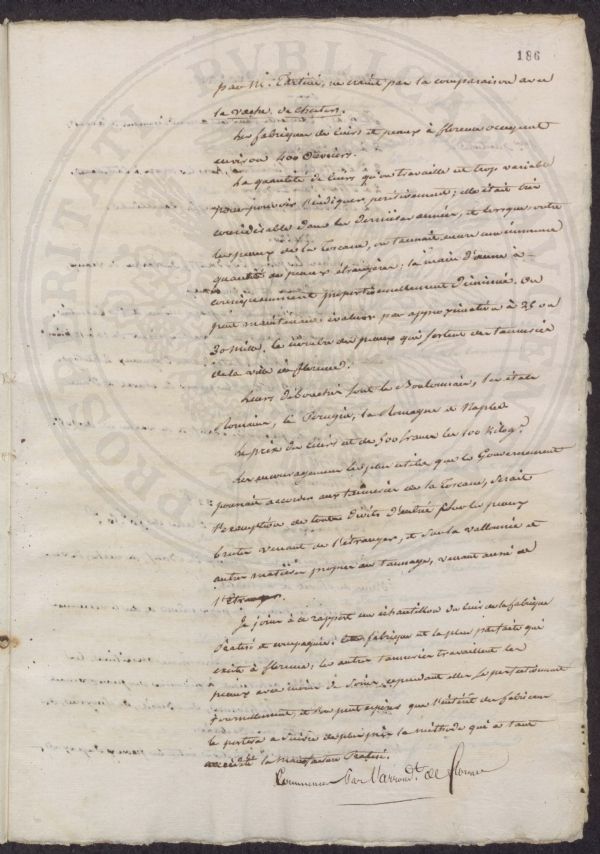 186
par Mr. ne craint pas la comparaison avec
la vache de
Les fabriques de cuirs et peaux à florence occupent
environ 400 Ouvriers.
La quantité de cuirs qu'on travaille est trop variable
pour pouvoir l'indiquer précisément; elle était très
considérable dans les dernières années, et lorsque outre
les peaux de la Toscane, on tannait encore une immense
quantité de peaux étrangères; la main d'œuvre a
conséquemment proportionnellement diminué. On
peut maintenant évaluer par approximation à 25 ou
30 mille, le nombre des peaux qui sortent des tanneries
de la ville de florence.
Leurs débouchés sont le Boulonnais, l'état
Romain, le Perugin, la Romagne et Naples
Le prix des cuirs est de 500 francs les 100 Kilogs.
Les encouragemens les plus utiles que le Gouvernement
pourrait accorder aux tanneries de la Toscane, serait
l'exemption de tous Droits d'entrée sur les peaux
brutes venant de l'étranger, et sur la vallonnée et
autres matières propres au tannage, venant aussi de
l'étranger.
Je joins à ce rapport un échantillon du cuir de la fabrique
et compagnie. Cette fabrique est la plus parfaite qui
existe à florence; les autres tanneries travaillent les
peaux avec moins de soins, cependant elles se perfectionnent
journellement, et l'on peut espérer que l'intérêt des fabricans
le portera à suivre de plus près la méthode qui a tant
la manufacture
Commerce Par l'arrondt. de florence
PROSPERITATI PUBLICAE